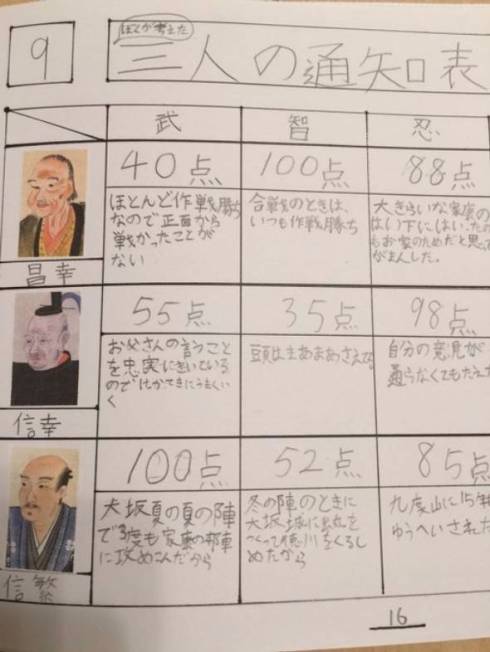 9
ぼくが考えた
三人の通知表
武 智 忍
40点 100点 88点
ほとんど作戦勝ち
なので正面から
戦かったことが
ない
合戦のときは、
いつも作戦勝ち
大きらいな家康の
はい下にはいったの
もお家のためだと思って
がまんした。
昌幸
55点 35点 98点
お父さんの言うこと
を忠実にきいている
ので
く
頭はまあまあさえてる
自分の意見が
通らなくてもたえた
信幸
100点 52点 85点
大坂夏の夏の陣
で3度も家康の本陣
に攻めこんだから
冬の陣のときに
大坂城に出丸を
つくって徳川をくるし
めたから
九度山に15年
ゆうへいされた
信繁
16